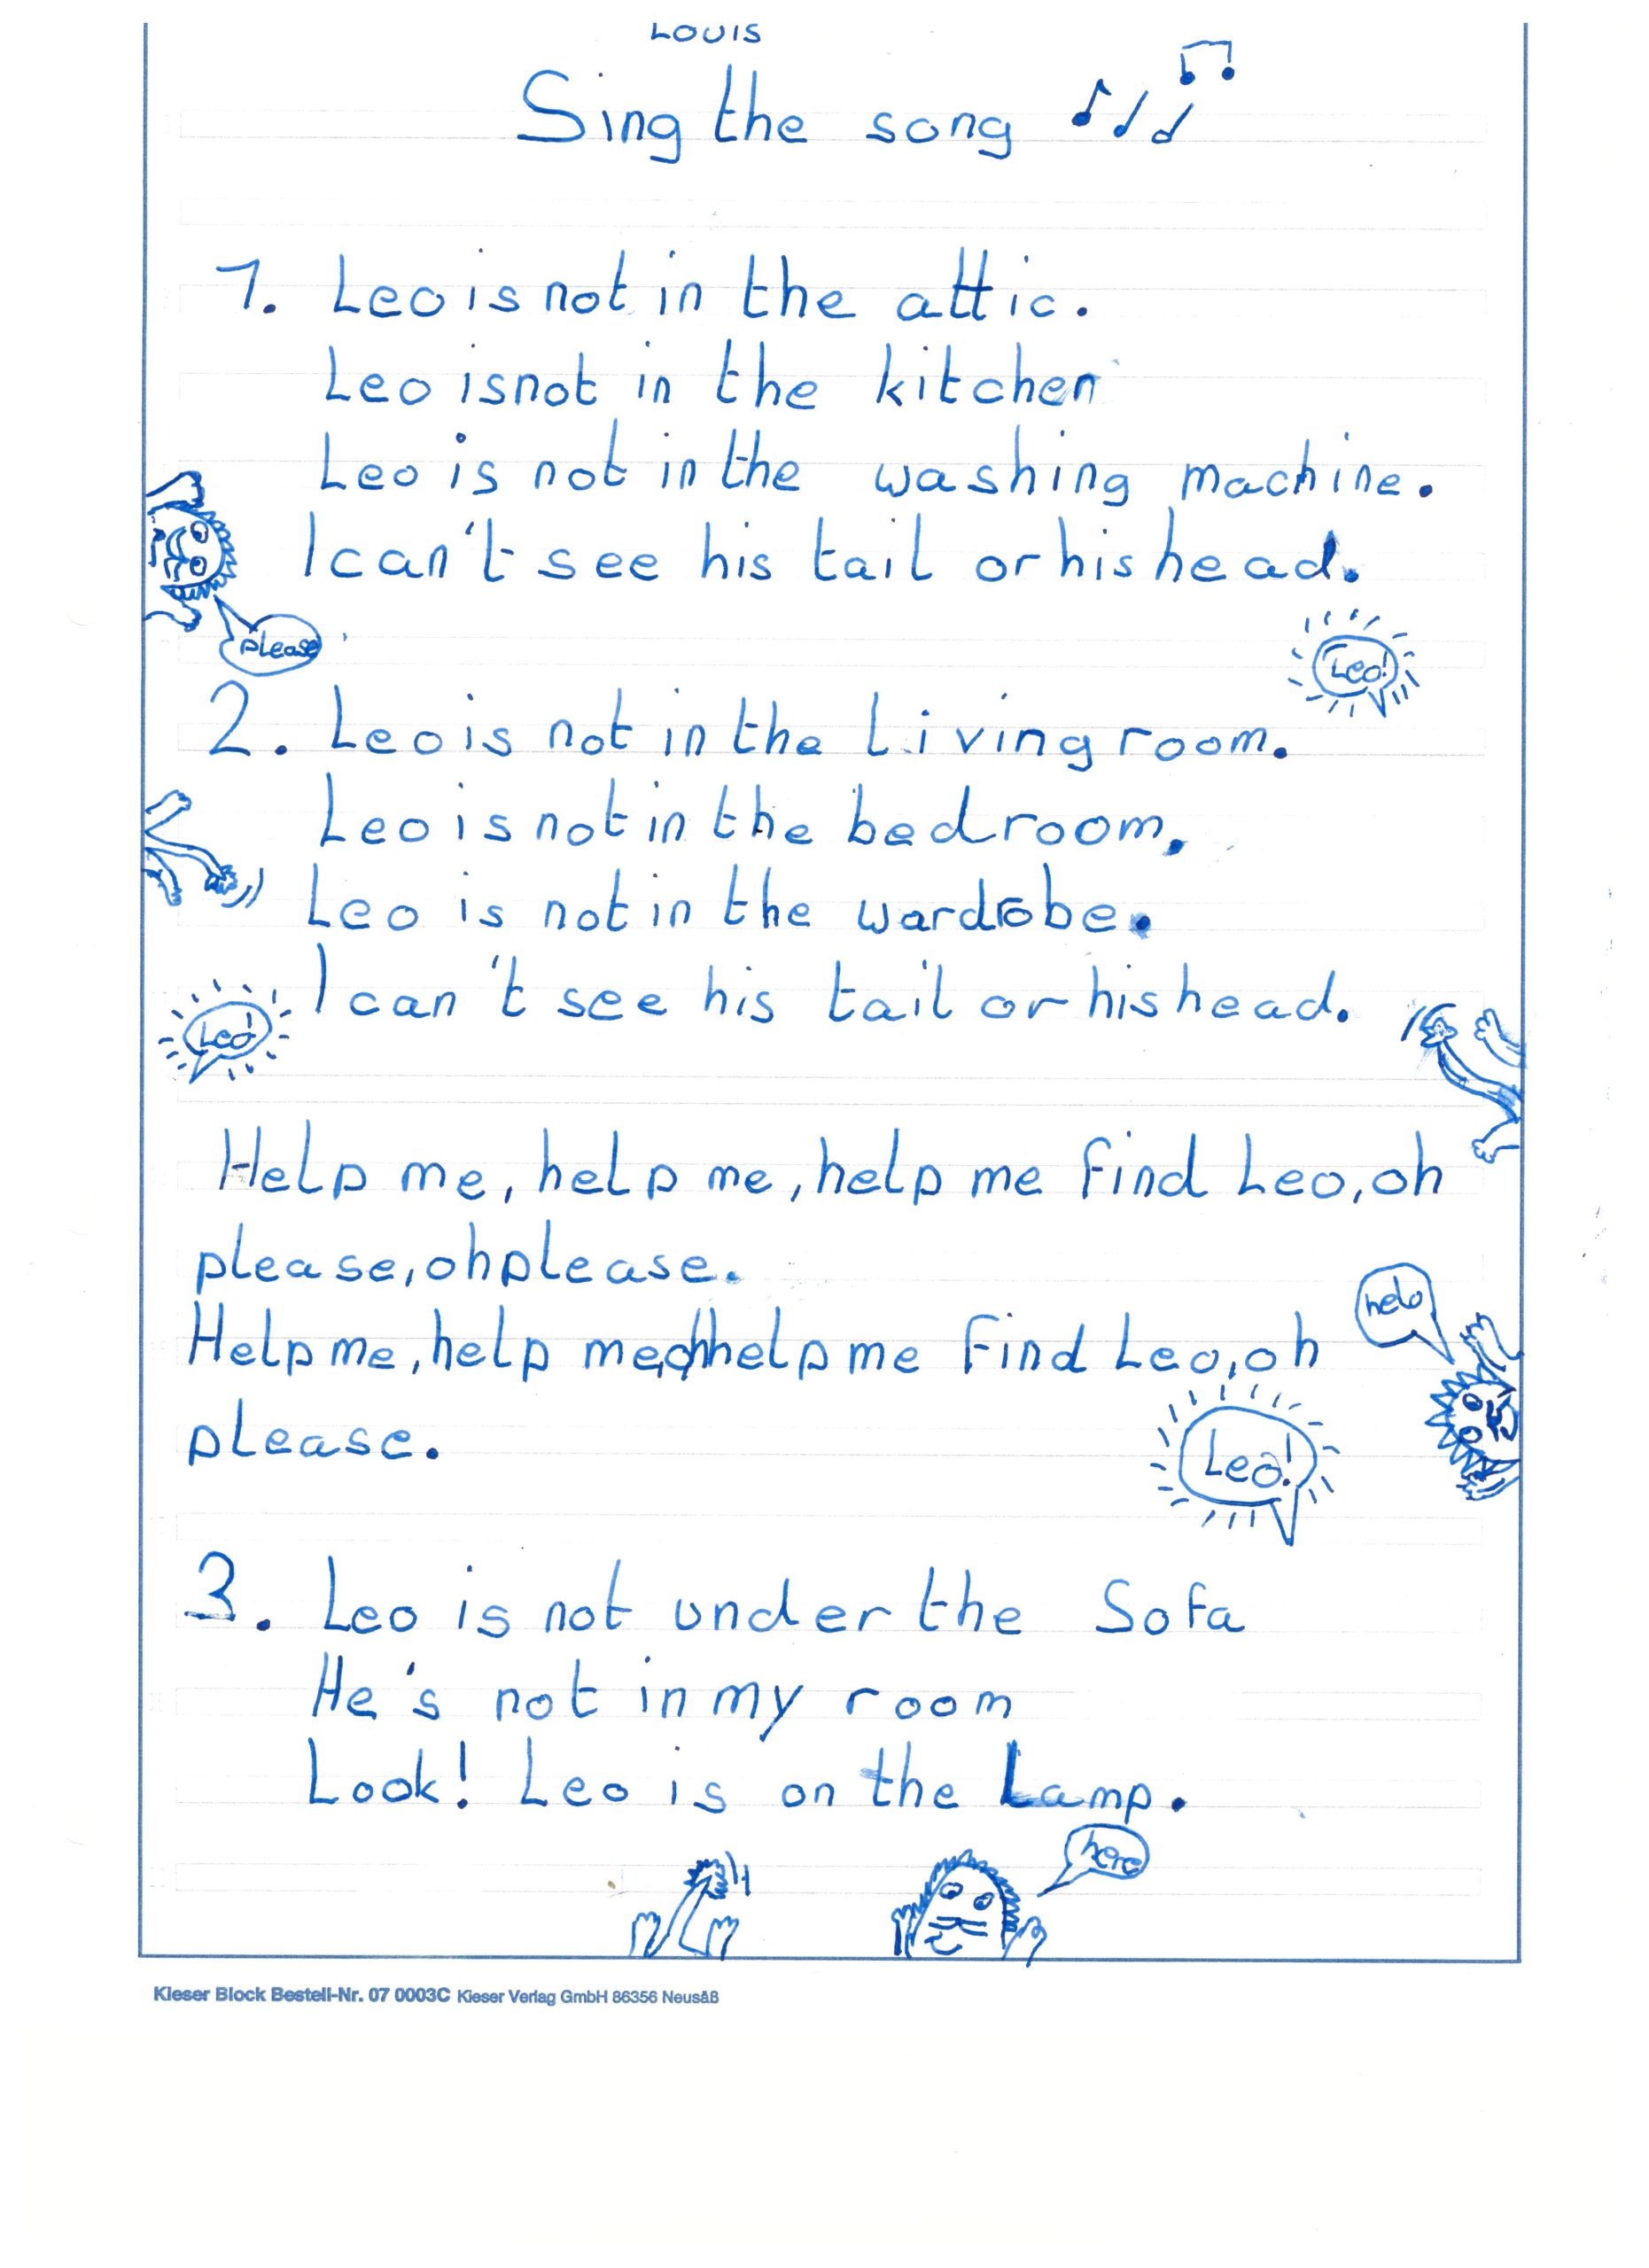 LOUIS
Sing the song
1. Leo is not in the attic.
Leo is not in the kitchen
Leo is not in the washing machine.
I can't see his tail or his head.
please
Leo!
2. Leo is not in the Living room.
Leo is not in the bedroom.
Leo is not in the wardrobe.
I can't see his tail or his head.
Leo!
Help me, help me, help me find Leo, oh
please, oh please.
help
Help me, help me, help me find Leo, oh
please.
Leo!
3. Leo is not under the Sofa
He's not in my room
Look! Leo is on the Lamp.
here
Kieser Block Bestell-Nr. 07 0003C Kieser Verlag GmbH 86356 Neusäß